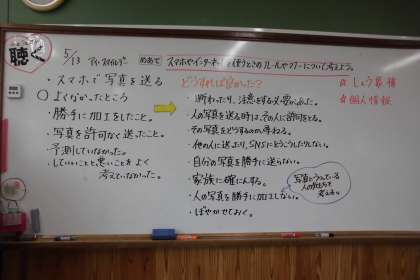 聴く
5/13
めあて スマホやインターネットを使うときのルールやマナーについて考えよう。
・スマホで写真を送る
○よくなかったところ
・勝手に加工をしたこと。
・写真を許可なく送ったこと。
・予測していなかった。
・していいことと悪いことをよく
考えていなかった。
どうすれば良かった?
・断わったり、注意をする必要があった。
・人の写真を送る時は、その人に許可をとる。
・その写真をどうするのか尋ねる。
・他の人に送ったり、SNSにどうこうしたりしない。
・自分の写真を勝手に送らない。
・家族に確にんする。
・人の写真を勝手に加工しない。
・ぼやかせておく。
写真にうつっている
人の気持ちを
考える。
☆しょう像権
☆個人情報